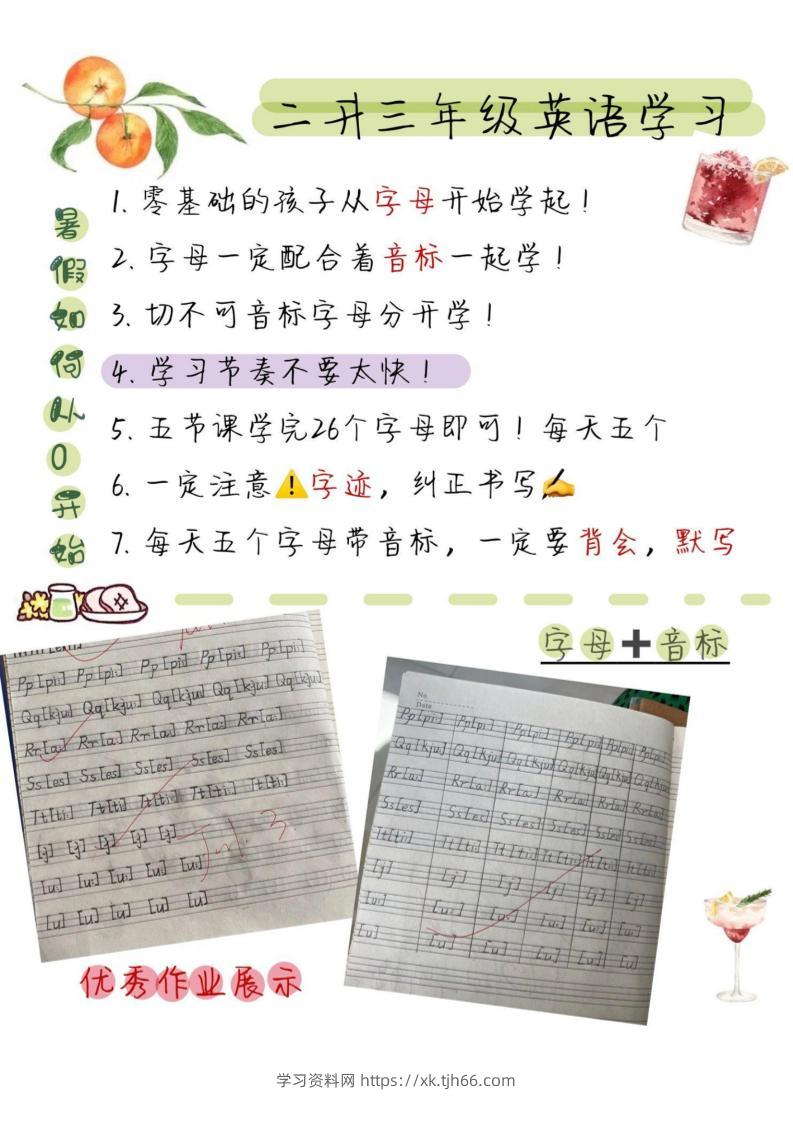 二升三年级英语学习
暑假如何从0开始
1. 零基础的孩子从字母开始学起！
2. 字母一定配合着音标一起学！
3. 切不可音标字母分开学！
4. 学习节奏不要太快！
5. 五节课学完26个字母即可！每天五个
6. 一定注意⚠️字迹，纠正书写✍️
7. 每天五个字母带音标，一定要背会，默写
字母➕音标
Pp [pi:] Pp [pi:] Pp [pi:] Pp [pi:] Pp [pi:]
Qq [kju:] Qq [kju:] Qq [kju:] Qq [kju:] Qq [kju:]
Rr [a:] Rr [a:] Rr [a:] Rr [a:] Rr [a:]
Ss [es] Ss [es] Ss [es] Ss [es] Ss [es]
Tt [ti:] Tt [ti:] Tt [ti:] Tt [ti:] Tt [ti:]
[j] [j] [j] [j] [j]
[u:] [u:] [u:] [u:] [u:]
[u] [u] [u] [u] [u]
No.
Date
Pp [pi:] Pp [pi:] Pp [pi:] Pp [pi:] Pp [pi:] Pp [pi:]
Qq [kju:] Qq [kju:] Qq [kju:] Qq [kju:] Qq [kju:] Qq [kju:]
Rr [a:] Rr [a:] Rr [a:] Rr [a:] Rr [a:] Rr [a:]
Ss [es] Ss [es] Ss [es] Ss [es] Ss [es] Ss [es]
Tt [ti:] Tt [ti:] Tt [ti:] Tt [ti:] Tt [ti:] Tt [ti:]
[j] [j] [j] [j] [j] [j]
[u:] [u:] [u:] [u:] [u:] [u:]
[u] [u] [u] [u] [u] [u]
优秀作业展示
学习资料网 https://xk.tjh66.com